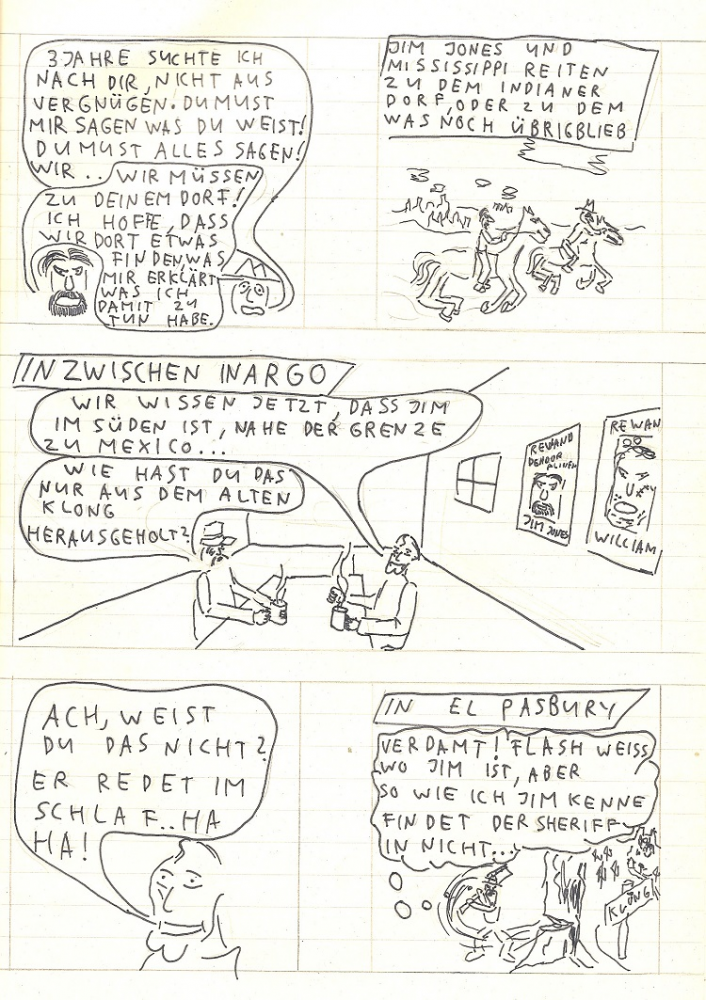 3 JAHRE SUCHTE ICH
NACH DIR, NICHT AUS
VERGNÜGEN. DU MUST
MIR SAGEN WAS DU WEIST!
DU MUST ALLES SAGEN!
WIR.. WIR MÜSSEN
ZU DEINEM DORF!
ICH HOFFE, DASS
WIR DORT ETWAS
FINDEN, WAS
MIR ERKLÄRT
WAS ICH
DAMIT ZU
TUN HABE.
JIM JONES UND
MISSISSIPPI REITEN
ZU DEM INDIANER
DORF, ODER ZU DEM
WAS NOCH ÜBRIGBLIEB
INZWISCHEN IN ARGO
WIR WISSEN JETZT, DASS JIM
IM SÜDEN IST, NAHE DER GRENZE
ZU MEXICO...
WIE HAST DU DAS
NUR AUS DEM ALTEN
KLONG
HERAUSGEHOLT?
REWARD
JIM JONES
REWAR
WILLIAM
ACH, WEIST
DU DAS NICHT?
ER REDET IM
SCHLAF.. HA
HA!
IN EL PASBURY
VERDAMT! FLASH WEISS
WO JIM IST, ABER
SO WIE ICH JIM KENNE
FINDET DER SHERIFF
IN NICHT...
KLONG